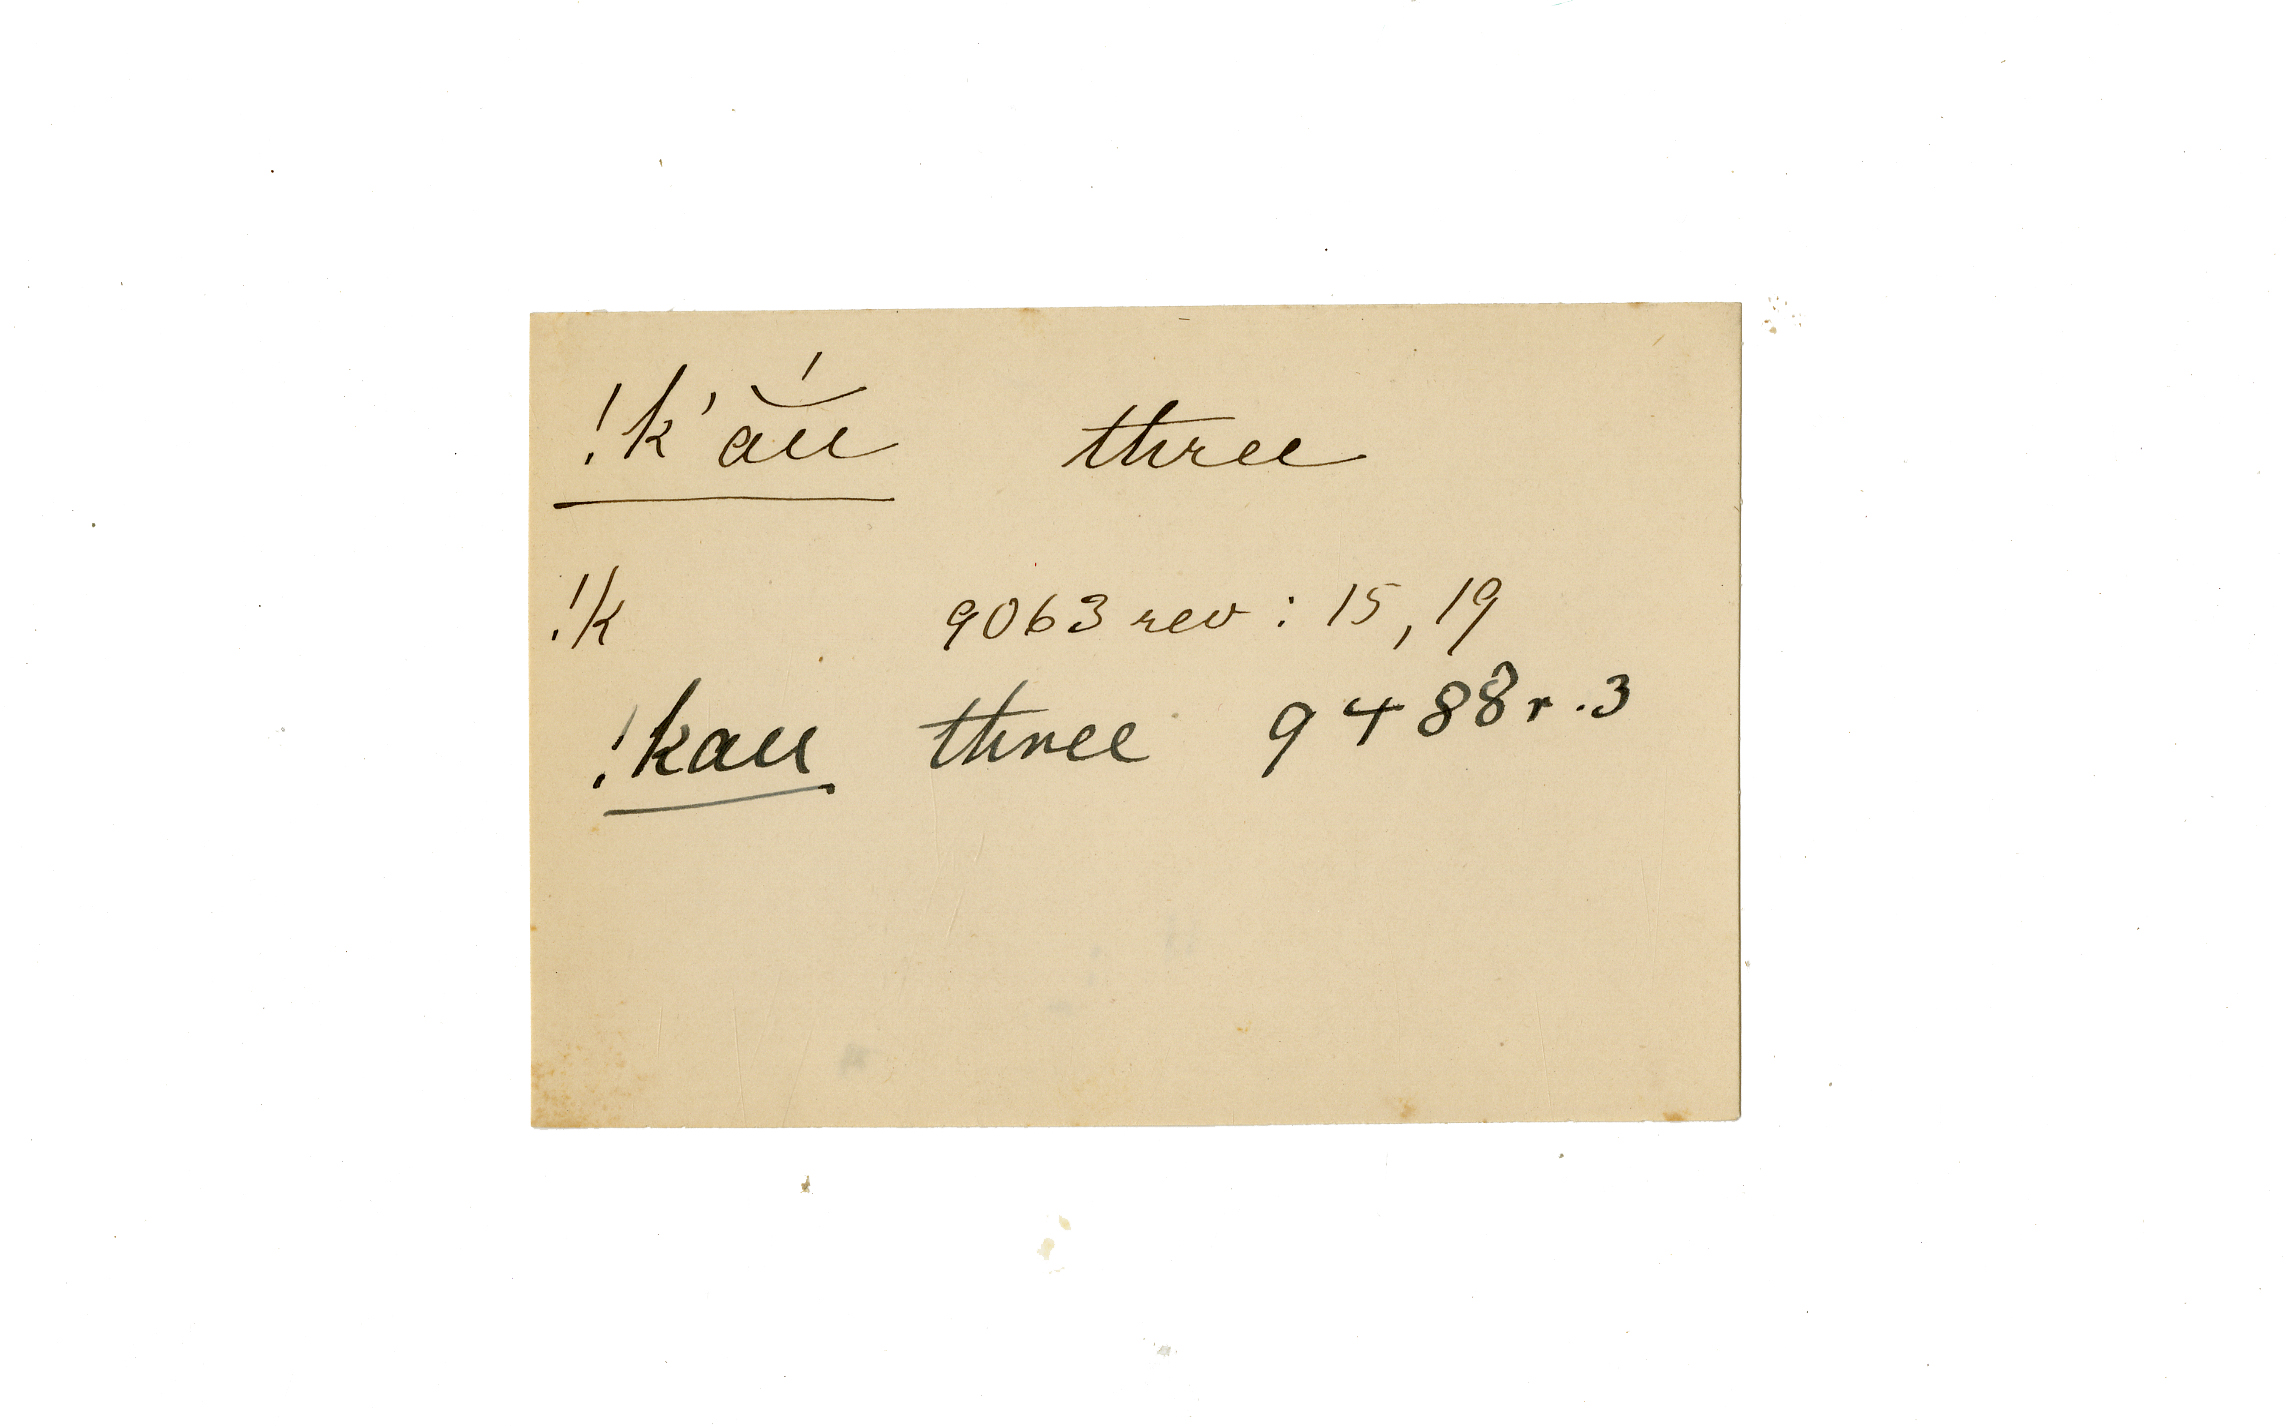 !k'ắu three
!k 9063 rev : 15, 19
!kau three 9488 r. 3